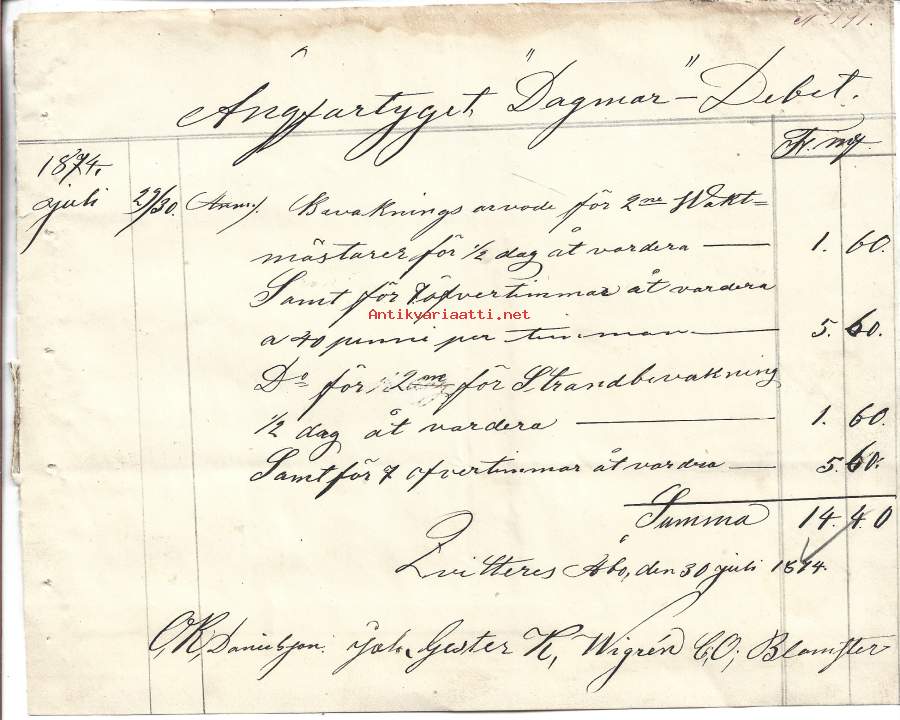 N 191.
Ångfartyget, "Dagmar" – Debet.
Fr. my
1874.
juli 29/30. Bevaknings arvode för 2ne Wakt=
mästarer för 1/2 dag åt vardera — 1. 60.
Samt för 7 öfvertimmar åt vardera
Antikvariaatti.net
a 40 penni per timman — 5. 60.
Do för 2ne för Strandbevakning
1/2 dag åt vardera — 1. 60.
Samt för 7 ofvertimmar åt vardra — 5. 60.
Summa 14. 40
Qvitteres Åbo, den 30 juli 1874.
C, R, Danielsson. Joh, Gester K, Wigrén C, O, Blomster